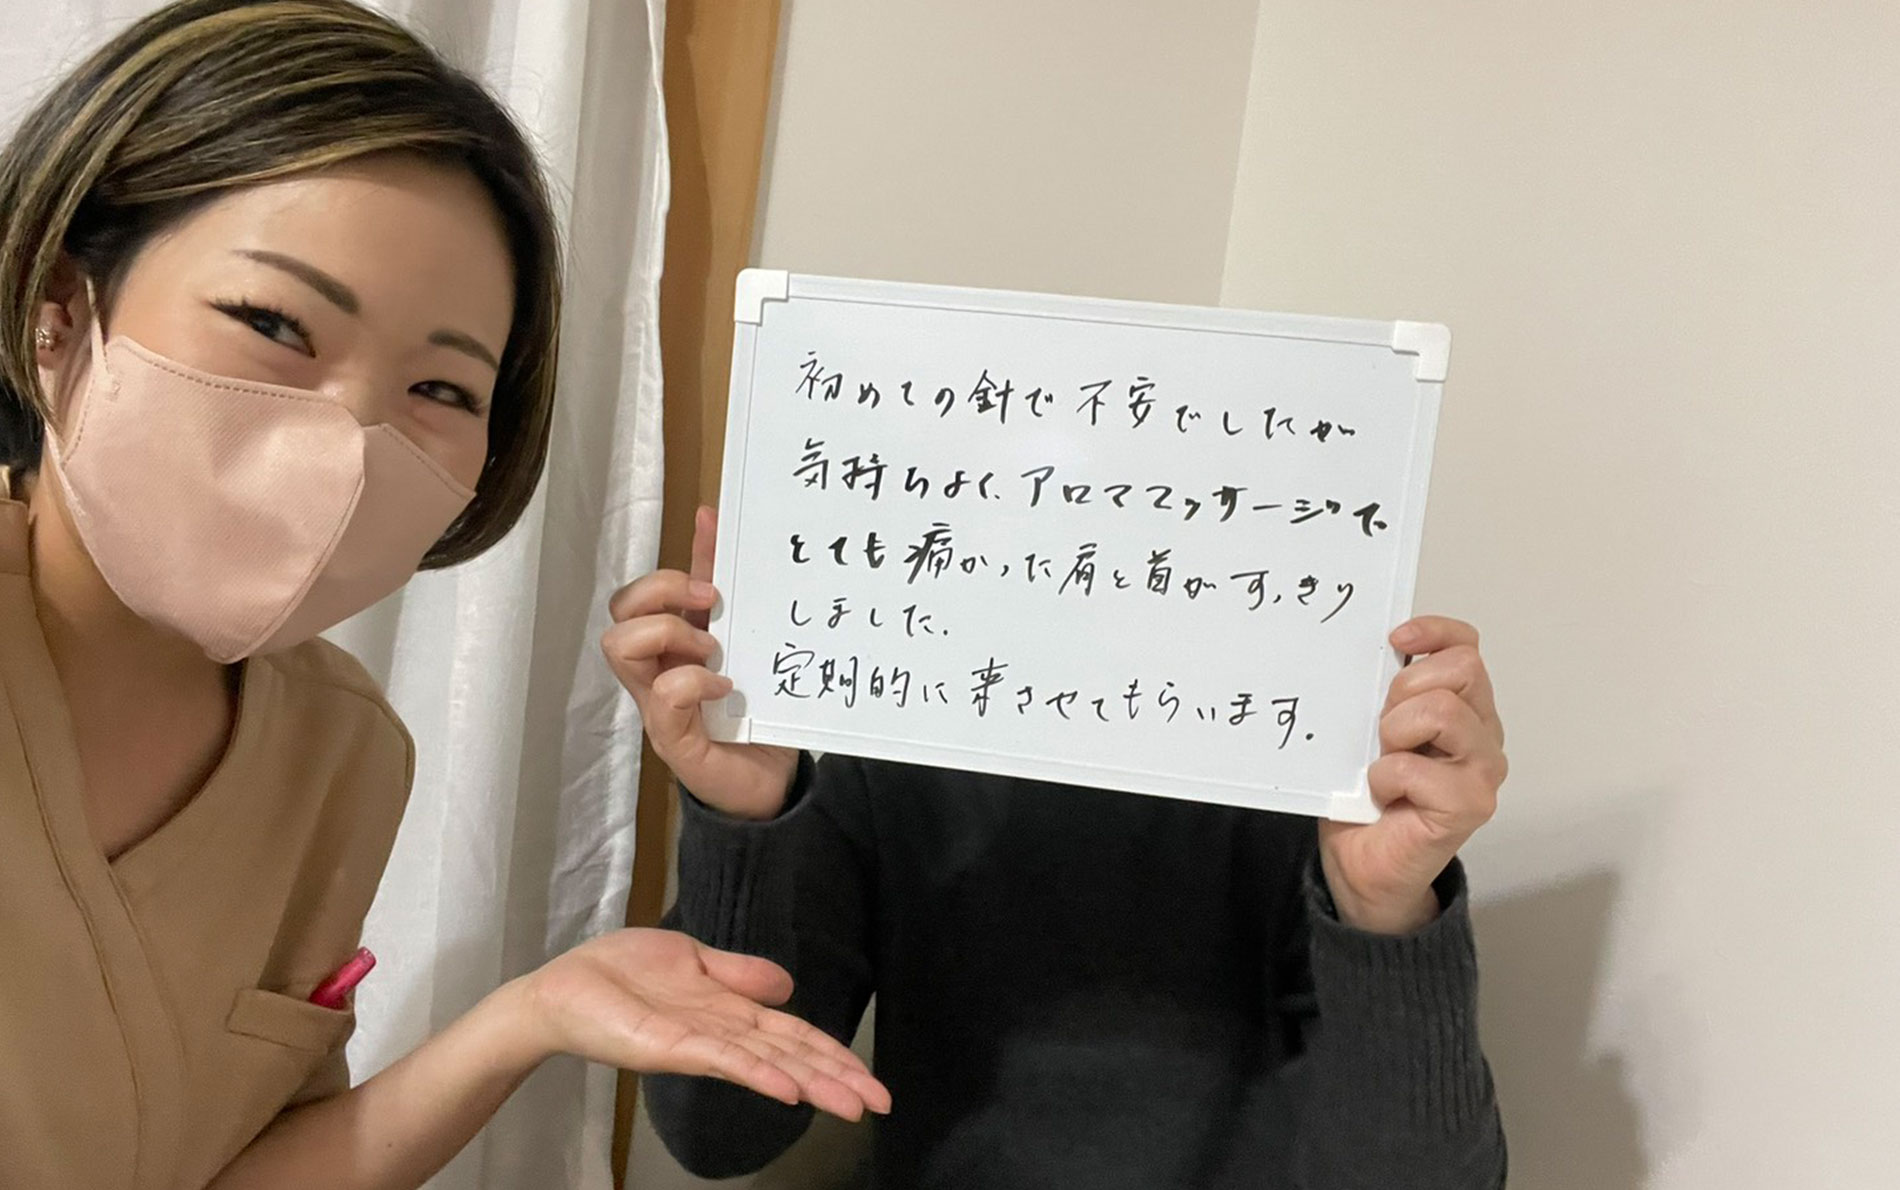 初めての針で不安でしたが
気持ちよく、アロママッサージで
とても痛かった肩と首がすっきり
しました.
定期的に来させてもらいます.